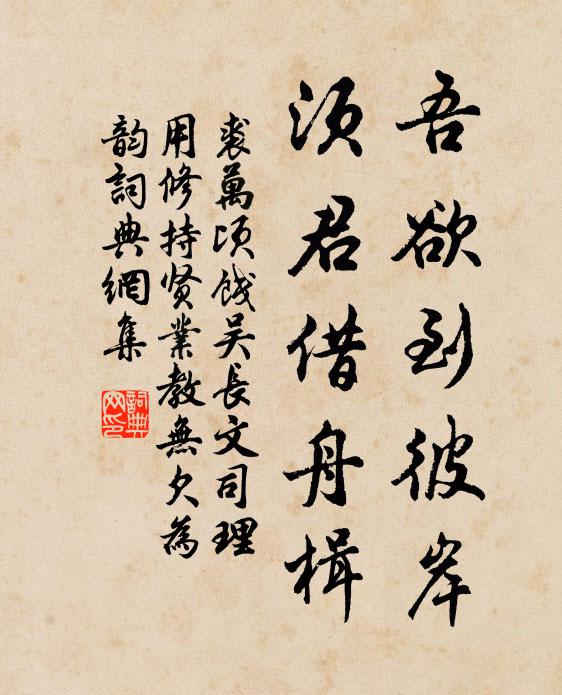 吾欲到彼岸
須君借舟楫
裘萬頃餞吴長文司理
用修持贤業教無欠為
韵詞典網集
詞典
网印